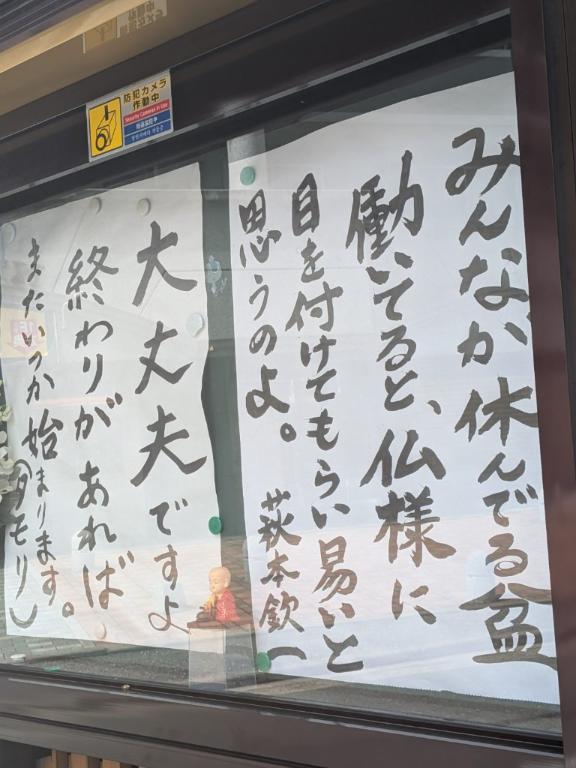 みんなが休んでる盆
働いてると、仏様に
目を付けてもらい易いと
思うのよ。 萩本欽一
大丈夫ですよ
終わりがあれば
またいつか始まります。
(タモリ)
防犯カメラ
作動中
Security Cameras in Use